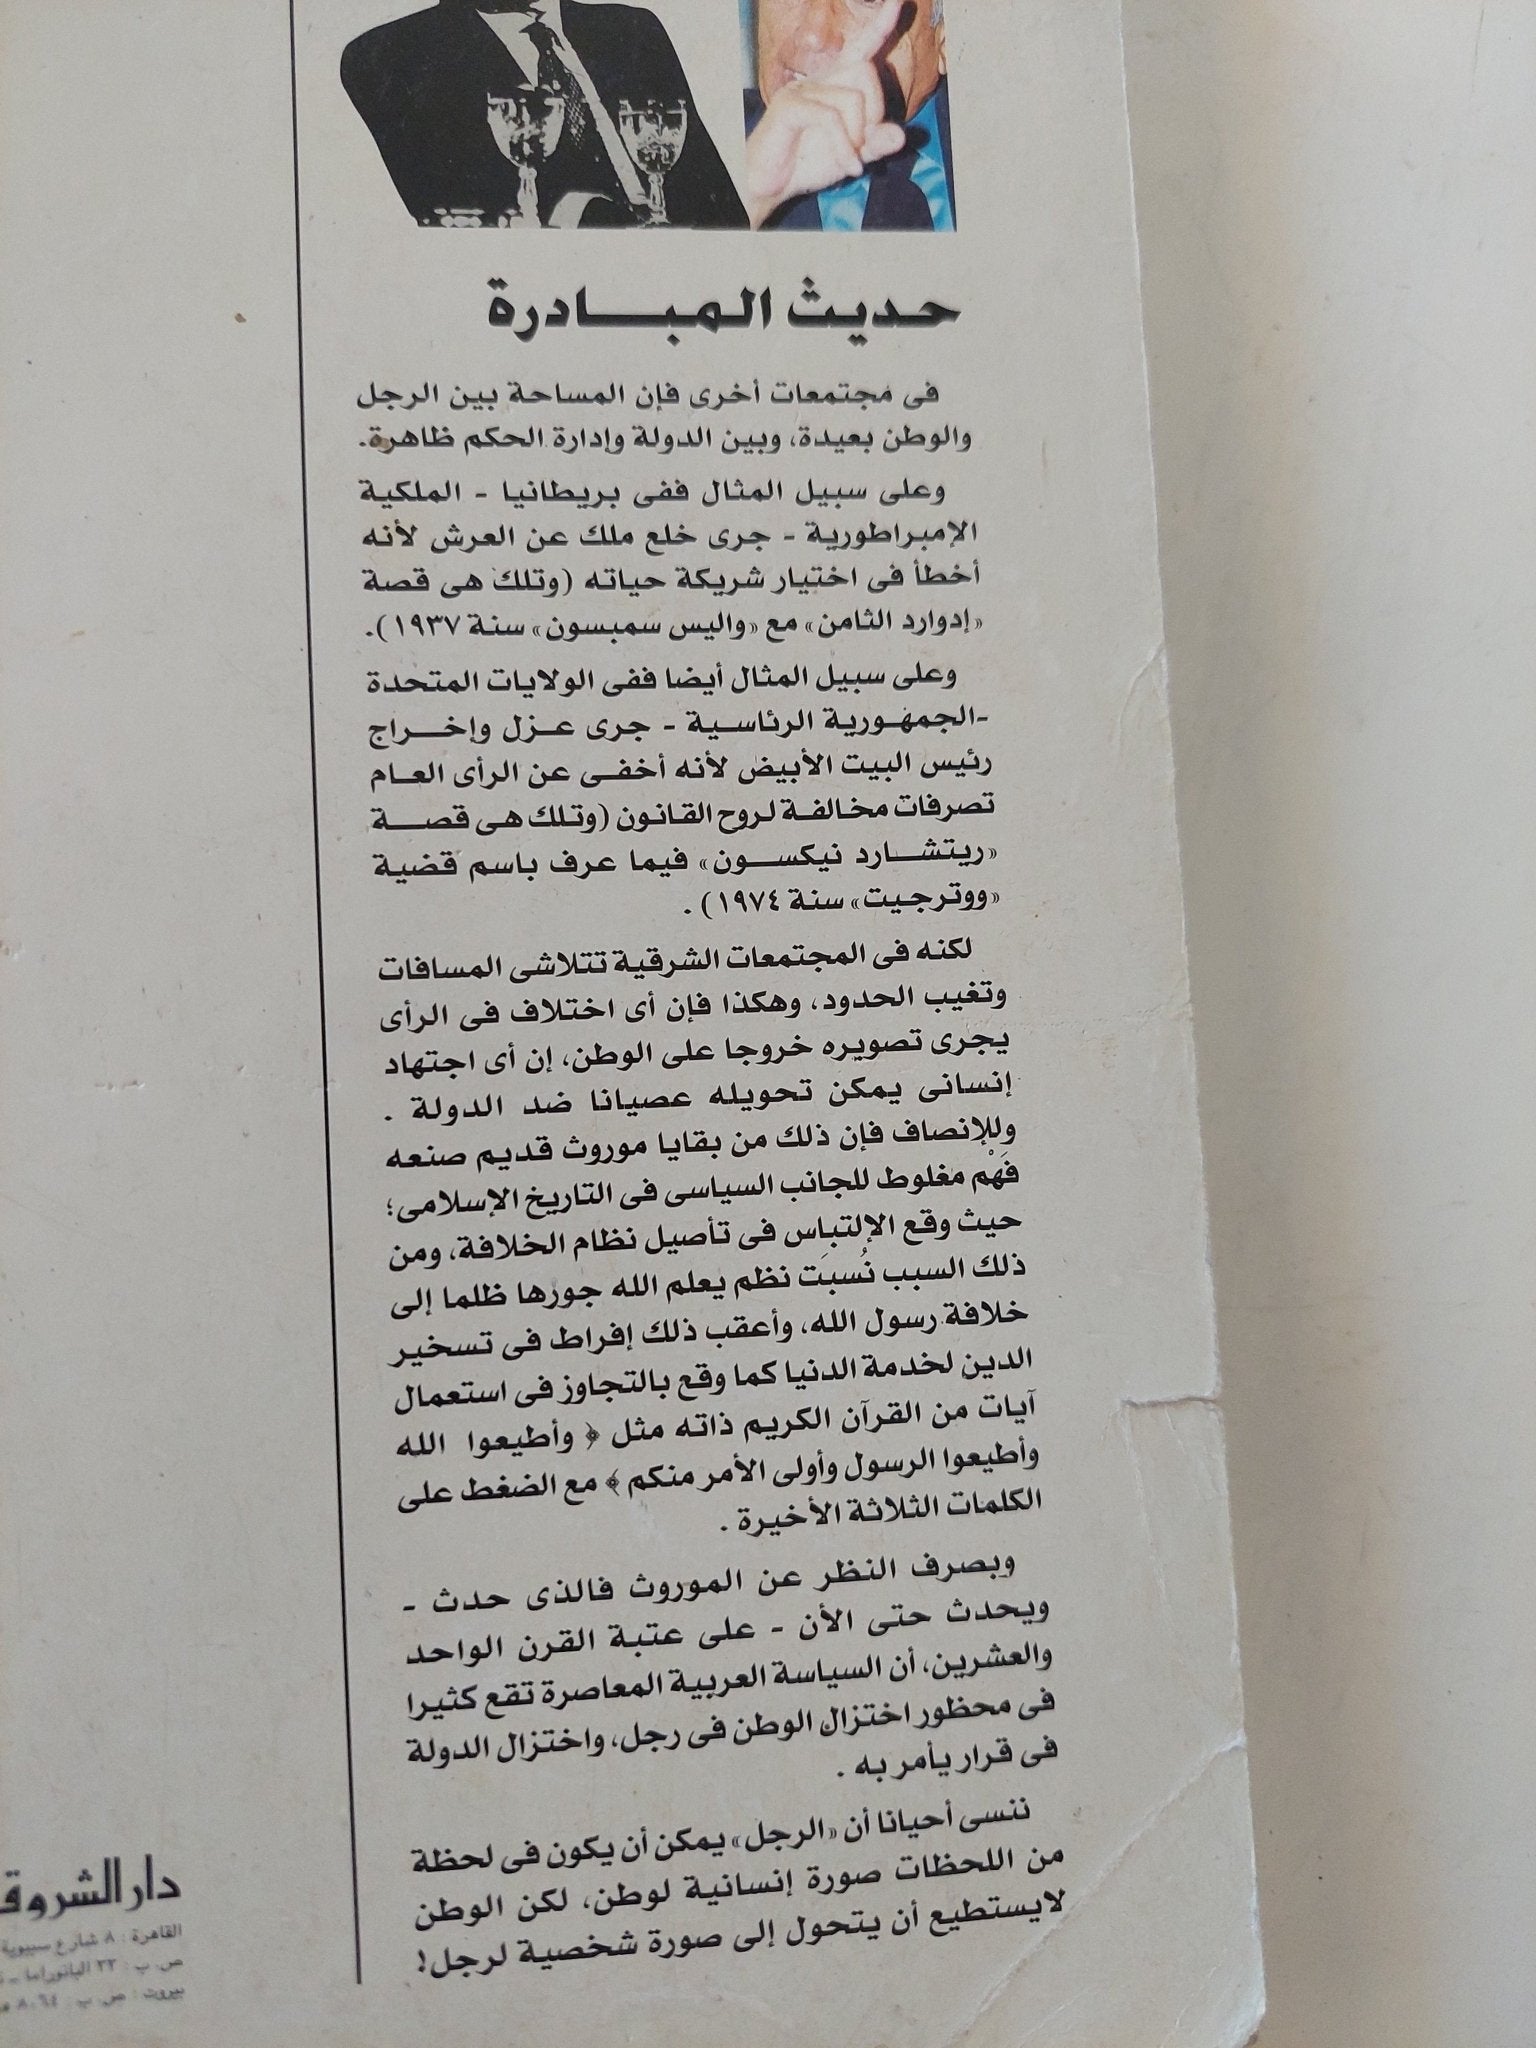 حديث المبادرة
فى مجتمعات أخرى فإن المساحة بين الرجل
والوطن بعيدة، وبين الدولة وإدارة الحكم ظاهرة.
وعلى سبيل المثال ففى بريطانيا - الملكية
الإمبراطورية - جرى خلع ملك عن العرش لأنه
أخطأ فى اختيار شريكة حياته (وتلك هى قصة
«إدوارد الثامن» مع «واليس سمبسون» سنة ١٩٣٧).
وعلى سبيل المثال أيضا ففى الولايات المتحدة
-الجمهورية الرئاسية - جرى عزل وإخراج
رئيس البيت الأبيض لأنه أخفى عن الرأى العام
تصرفات مخالفة لروح القانون (وتلك هى قصة
«ريتشارد نيكسون» فيما عرف باسم قضية
«ووترجيت» سنة ١٩٧٤) .
لكنه فى المجتمعات الشرقية تتلاشى المسافات
وتغيب الحدود، وهكذا فإن أى اختلاف فى الرأى
يجرى تصويره خروجا على الوطن، إن أى اجتهاد
إنسانى يمكن تحويله عصيانا ضد الدولة .
وللإنصاف فإن ذلك من بقايا موروث قديم صنعه
فَهْم مغلوط للجانب السياسى فى التاريخ الإسلامى؛
حيث وقع الإلتباس فى تأصيل نظام الخلافة، ومن
ذلك السبب نُسبَت نظم يعلم الله جورها ظلما إلى
خلافة رسول الله، وأعقب ذلك إفراط فى تسخير
الدين لخدمة الدنيا كما وقع بالتجاوز فى استعمال
آيات من القرآن الكريم ذاته مثل ﴿ وأطيعوا الله
وأطيعوا الرسول وأولى الأمر منكم ﴾ مع الضغط على
الكلمات الثلاثة الأخيرة .
وبصرف النظر عن الموروث فالذى حدث -
ويحدث حتى الأن - على عتبة القرن الواحد
والعشرين، أن السياسة العربية المعاصرة تقع كثيرا
فى محظور اختزال الوطن فى رجل، واختزال الدولة
فى قرار يأمر به .
ننسى أحيانا أن «الرجل» يمكن أن يكون فى لحظة
من اللحظات صورة إنسانية لوطن، لكن الوطن
لايستطيع أن يتحول إلى صورة شخصية لرجل!
دار الشروق
القاهرة : ٨ شارع سيبوية
ص. ب : ٣٣ البانوراما -
بيروت : ص. ب : ٨٠٦٤